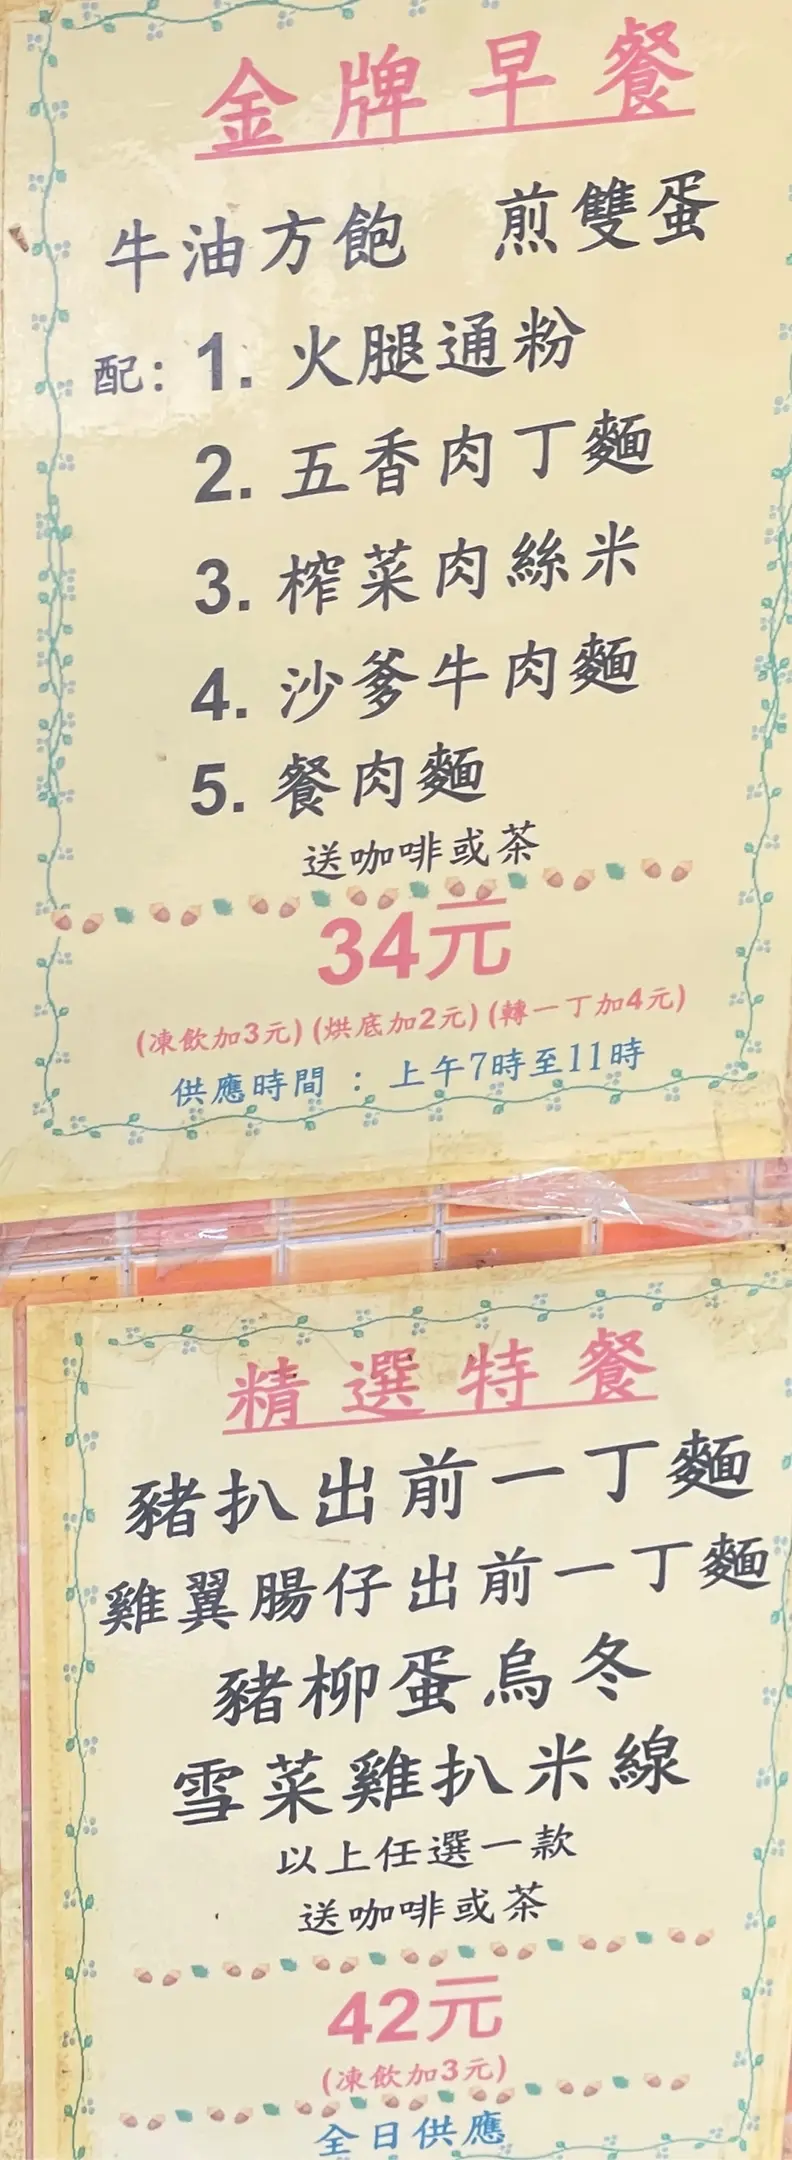 金牌早餐
牛油方飽 煎雙蛋
配: 1. 火腿通粉
2. 五香肉丁麵
3. 榨菜肉絲米
4. 沙爹牛肉麵
5. 餐肉麵
送咖啡或茶
34元
(凍飲加3元) (烘底加2元) (轉一丁加4元)
供應時間 : 上午7時至11時
精選特餐
豬扒出前一丁麵
雞翼腸仔出前一丁麵
豬柳蛋烏冬
雪菜雞扒米線
以上任選一款
送咖啡或茶
42元
(凍飲加3元)
全日供應